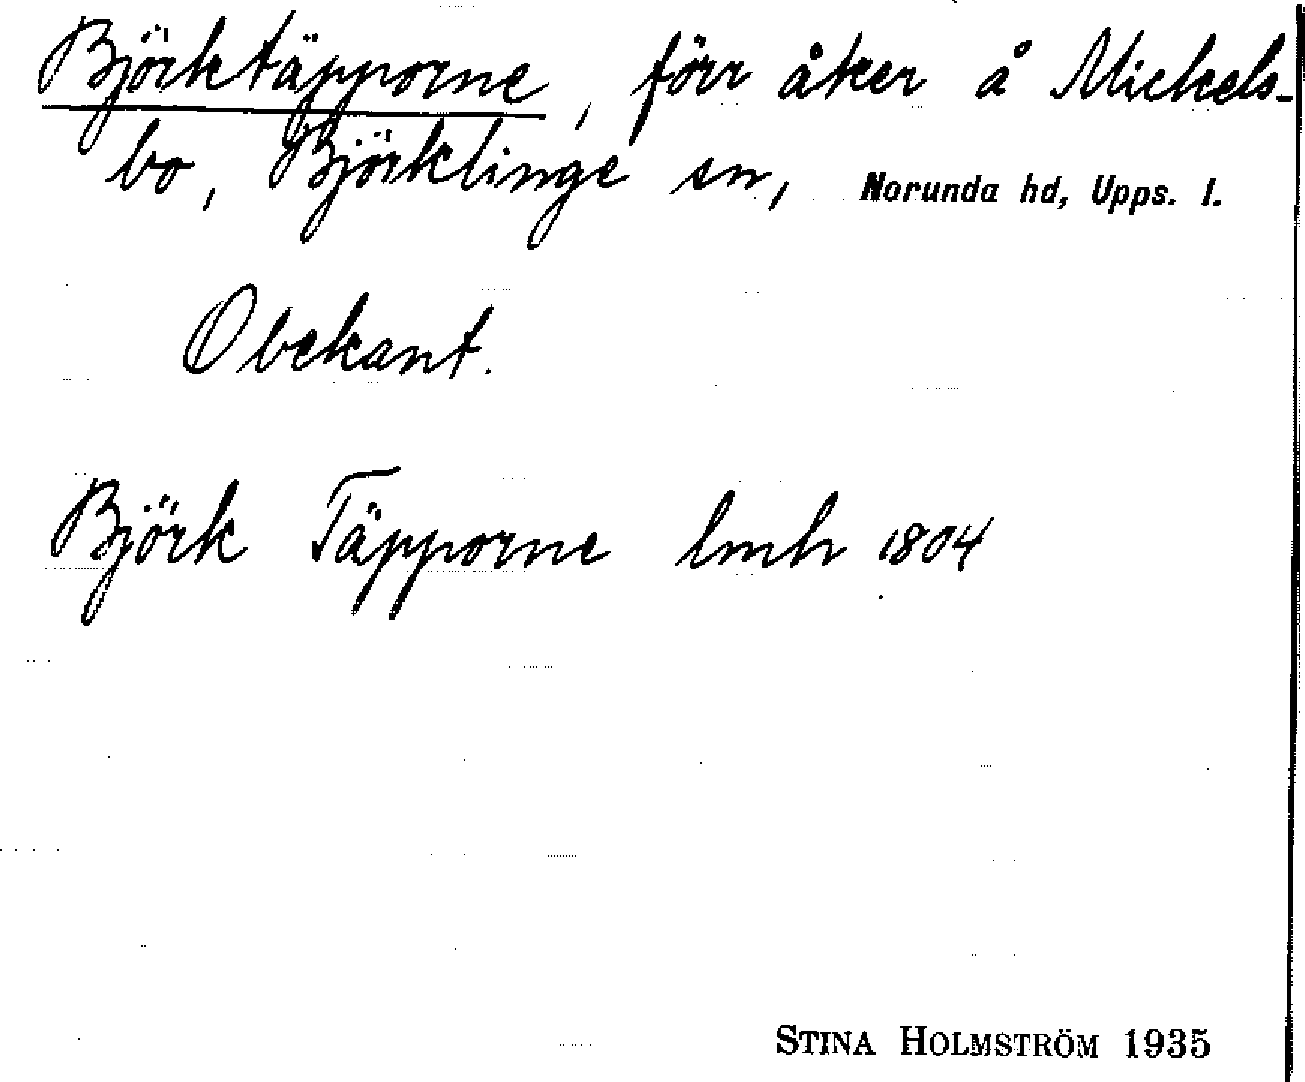 Björktäpporne, förr åker å Mickels-
bo, Björklinge sn, Norunda hd, Upps. l.
Obekant.
Björk Täpporne lmh 1804
STINA HOLMSTRÖM 1935